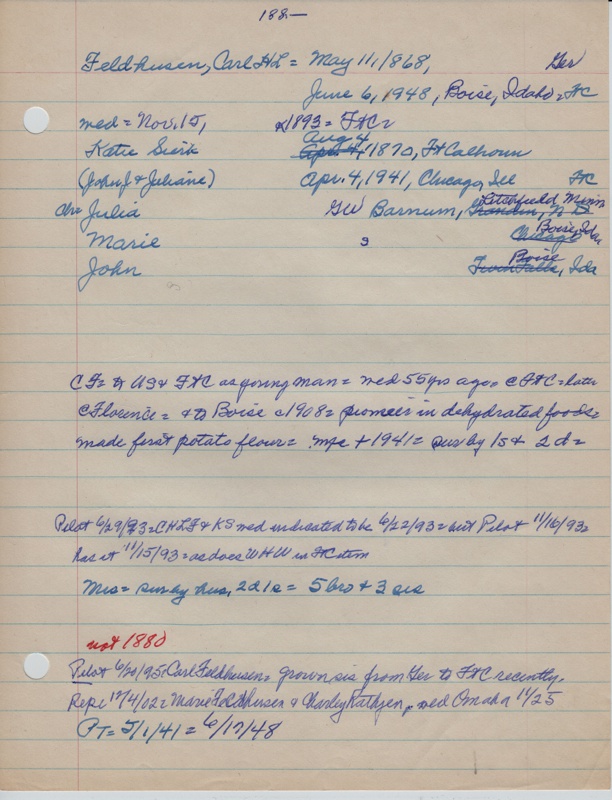 188-
Feldhusen, Carl HL = May 11, 1868, Ger
June 6, 1948, Boise, Idaho = FC
med = Nov. 15, 1893 = FtC =
Aug 4
Katie Sierk Apr. 4, 1870, Ft Calhoun
(John J & Juliane) Apr. 4, 1941, Chicago, Ill FC
Litchfield Minn
Ch = Julia GW Barnum, ND
Boise, Ida
Marie Chicago
Boise
John Twin Falls, Ida
CF = to US & FtC as young man = med 55 yrs ago = FtC = later
Florence = & to Boise c1908 = pioneer in dehydrated foods =
made first potato flour = Mrs + 1941 = sur by 1s & 2d =
Pilot 6/29/93 = CHLF & KS med indicated to be 6/22/93 = but Pilot 11/16/93 =
has it 11/15/93 = as does WHW in FC item
Mrs = sur by hus, 2d 1s = 5 bro & 3 sis
not 1880
Pilot 6/20/95 = Carl Feldhusen = grown sis from Ger to FtC recently.
Repc 12/4/02 = Marie Feldhusen & Charley Rathjen, med Omaha 11/25
PT = 5/1/41 = 6/17/48